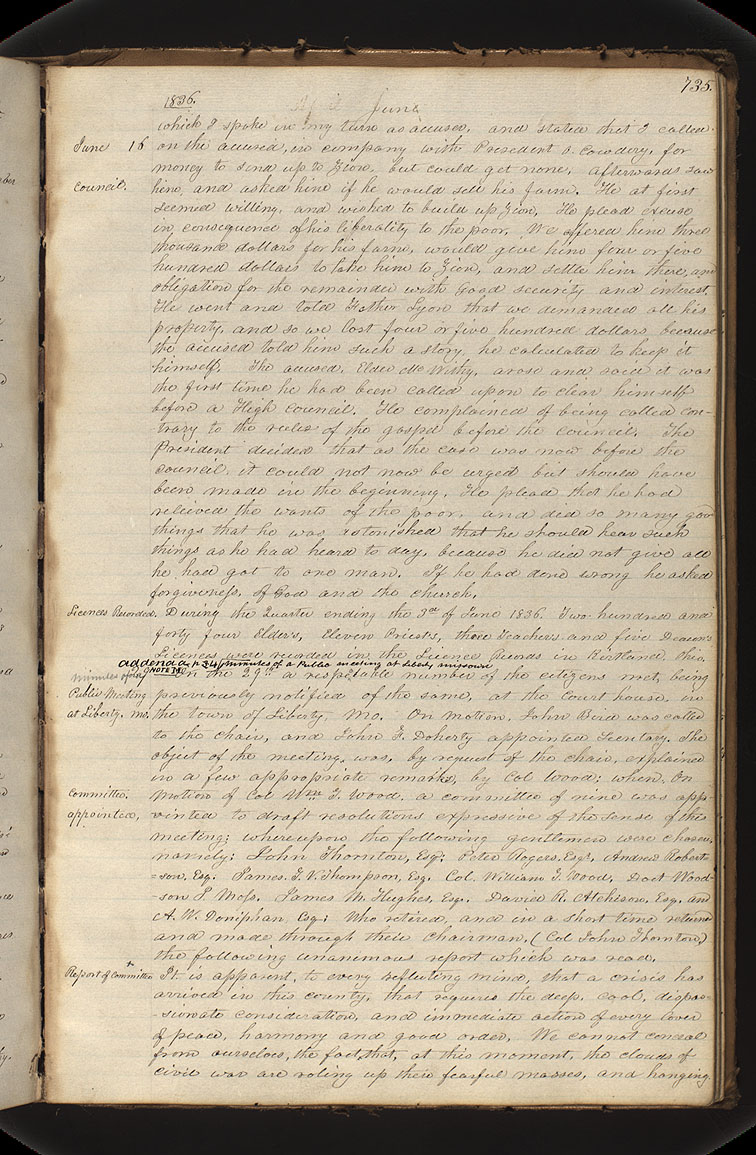 735.
1836.
June
which I spoke in my turn as accuser, and stated that I called
June 16 on the accused, in company with President O. Cowdery, for
money to send up to Zion, but could get none, afterwards saw
Council. him, and asked him if he would sell his farm. He at first
seemed willing, and wished to build up Zion, He plead excuse
in consequence of his liberality to the poor, We offered him three
thousand dollars for his farm, would give him four or five
hundred dollars to take him to Zion, and settle him there, and
obligation for the remainder with good security and interest.
He went and told Father Lyon that we demanded all his
property, and so we lost four or five hundred dollars because
the accused told him such a story, he calculated to keep it
himself. The accused, Elder Mc Withy, arose and said it was
the first time he had been called upon to clear himself
before a High Council. He complained of being called con-
trary to the rules of the gospel before the council. The
President decided that as the case was now before the
council, it could not now be urged but should have
been made in the beginning, He plead that he had
relieved the wants of the poor, and did so many good
things that he was astonished that he should hear such
things as he had heard to day, because he did not give all
he had got to one man. If he had done wrong he asked
forgiveness, of God and the church.
Licences Recorded. During the Quarter ending the 3rd of June 1836. Two hundred and
forty four Elder's, Eleven Priest's, three Teachers and five Deacon's
Licences were recorded in the Licence Records in Kirtland Ohio.
addenda, p 24, minutes of a Public meeting at Liberty, missouri
NOTE 14
minutes of a On the 29th a respectable number of the citizens met, being
Public Meeting previously notified of the same, at the Court house, in
at Liberty. mo. the town of Liberty, Mo. On motion, John Bird was called
to the chair, and John F. Doherty appointed Secretary. The
object of the meeting was, by request of the chair, explained
in a few appropriate remarks, by Col Wood; when, On
Committee. motion of Col Wm. T. Wood, a committee of nine was app-
appointed, ointed to draft resolutions expressive of the sense of this
meeting; whereupon the following gentlemen were chosen,
namely; John Thornton, Esq; Peter Rogers, Esqr, Andrew Robert-
=son, Esq. James. T. V. Thompson, Esq. Col. William T. Wood, Doct Wood-
-son J. Moss, James M. Hughes, Esq. David R. Atchison, Esq. and
A. W. Doniphan Esq; Who retired, and in a short time returned
and made through their chairman, (Col John Thornton,)
the following unanimous report which was read.
Report of Committee It is apparent, to every reflecting mind, that a crisis has
arrived in this county, that requires the deep, cool, dispas-
-sionate consideration, and immediate action of every lover
of peace, harmony and good order, We cannot conceal
from ourselves, the fact, that, at this moment, the clouds of
civil war are roling up their fearful masses, and hanging